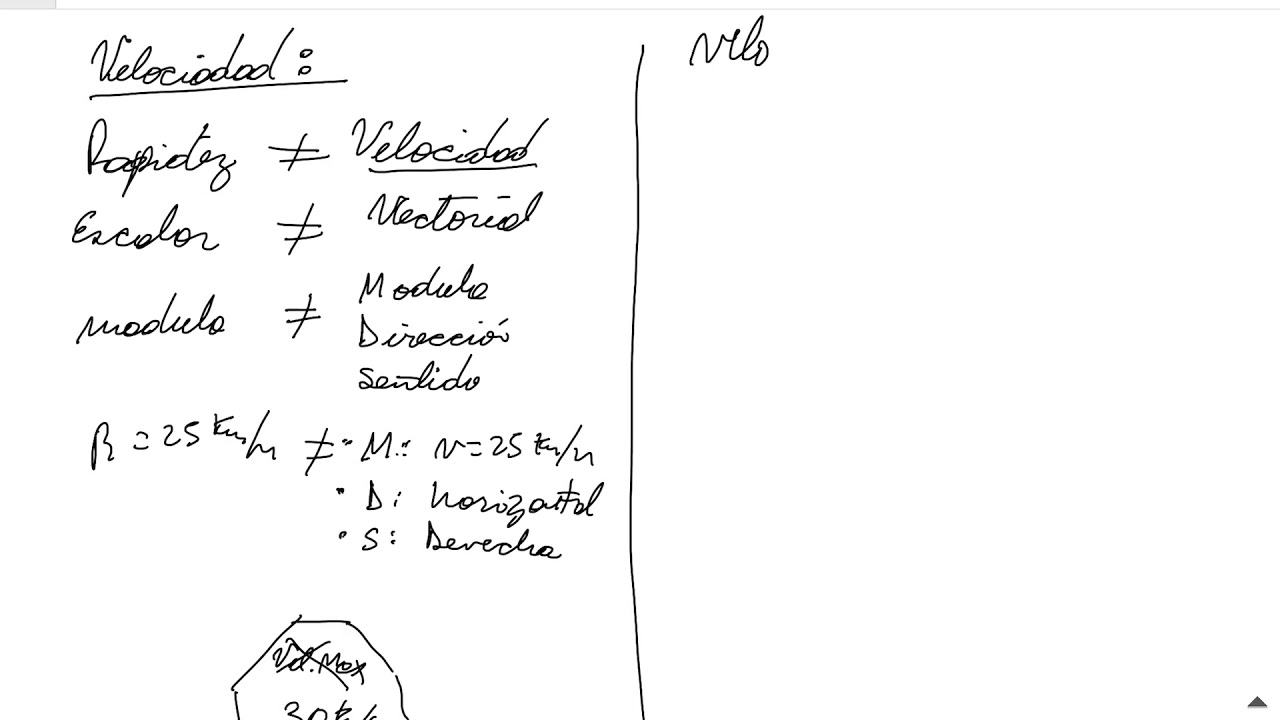 Velocidad:
Rapidez ≠ Velocidad
Escalar ≠ Vectorial
modulo ≠ Modulo
Dirección
Sentido
R = 25 km/h ≠ • M: v = 25 km/h
• D: horizontal
• S: Derecha
Vel. Max
30 k/
Velo